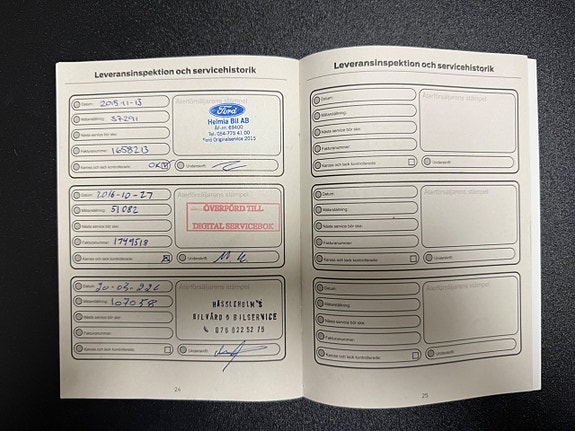 Leveransinspektion och servicehistorik
Datum: 2015-11-13
Mätarställning: 37291
Nästa service bör ske:
Fakturanummer: 1658213
Kaross och lack kontrollerade: OK
Återförsäljarens stämpel
Ford
Helmia Bil AB
Bil-nr: 69400
Tel. 054-775 41 00
Ford Originalservice 2015
Underskrift:
Datum: 2016-10-27
Mätarställning: 51082
Nästa service bör ske:
Fakturanummer: 1749518
Kaross och lack kontrollerade:
Återförsäljarens stämpel
ÖVERFÖRD TILL
DIGITAL SERVICEBOK
Underskrift:
Datum: 20-03-226
Mätarställning: 107058
Nästa service bör ske:
Fakturanummer:
Kaross och lack kontrollerade:
HÄSSLEHOLM'S
BILVÅRD & BILSERVICE
076 022 52 75
Underskrift:
24
Leveransinspektion och servicehistorik
Datum:
Mätarställning:
Nästa service bör ske:
Fakturanummer:
Kaross och lack kontrollerade:
Återförsäljarens stämpel
Underskrift:
Datum:
Mätarställning:
Nästa service bör ske:
Fakturanummer:
Kaross och lack kontrollerade:
Återförsäljarens stämpel
Underskrift:
Datum:
Mätarställning:
Nästa service bör ske:
Fakturanummer:
Kaross och lack kontrollerade:
Återförsäljarens stämpel
Underskrift:
25